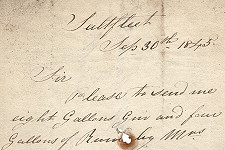 Saltfleet
Sep 30th 1843.
Sir
Please to send me
eight Gallons Gin and four
Gallons of Rum by Mrs